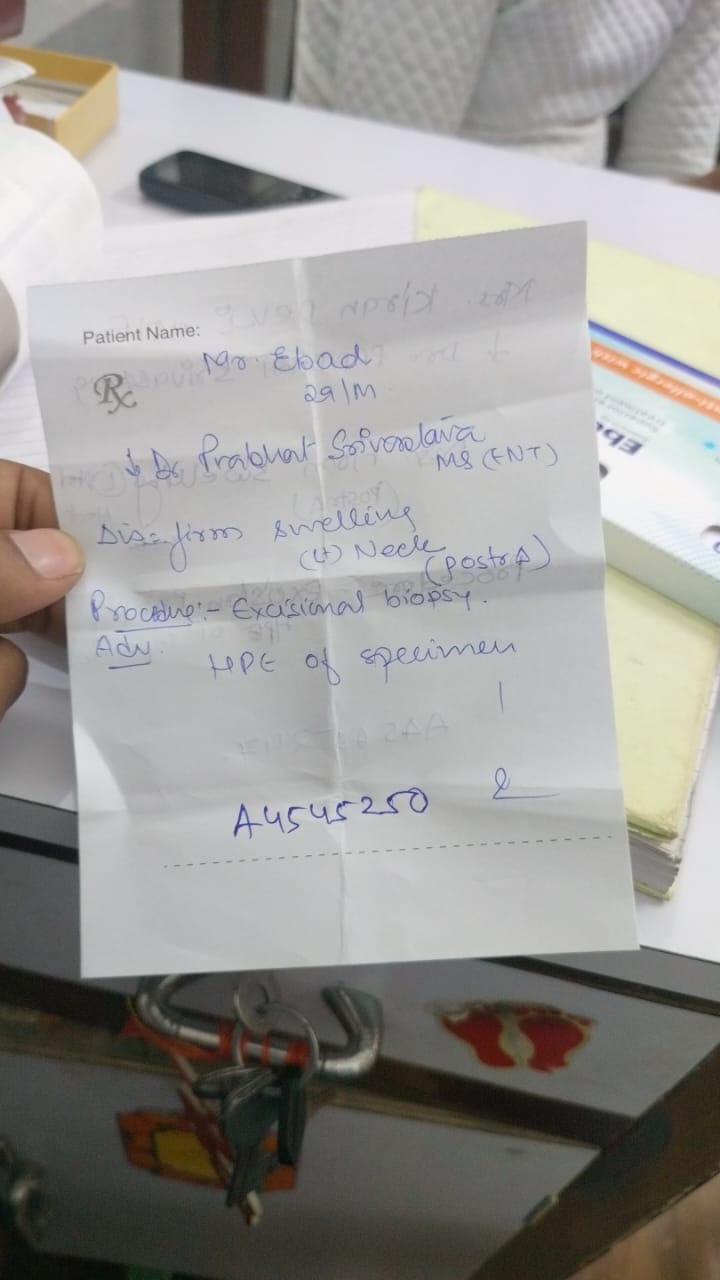 Patient Name:
Mr. Ebad
Rx
29/M
↓ Dr. Prabhat Srivastava
MS (ENT)
Dis:- firm swelling
(Lt) Neck
(Post Δ)
Procedure:- Excisional biopsy.
Adv.
HPE of specimen
A4545250